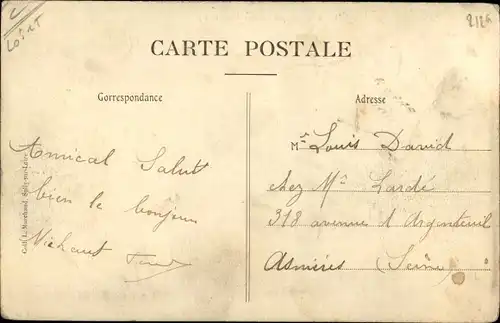 Loiret
2126
CARTE POSTALE
Correspondance
Adresse
Amical Salut
bien le bonjour
Michaut
Mr Louis David
chez Mr Lardé
318 avenue d'Argenteuil
Asnières (Seine)
Coll. L. Marchand, Sully-sur-Loire